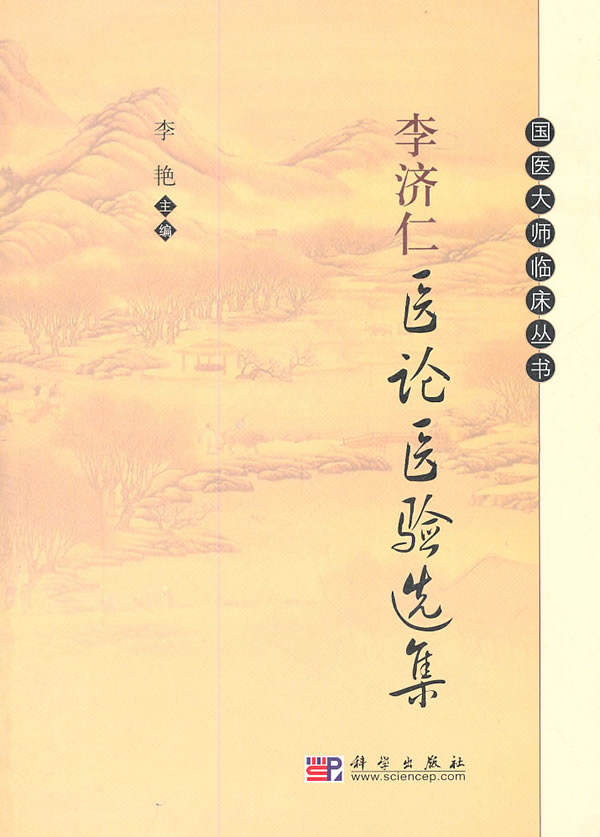 国医大师临床丛书
李济仁医论医验选集
李艳主编
科学出版社
www.sciencep.com